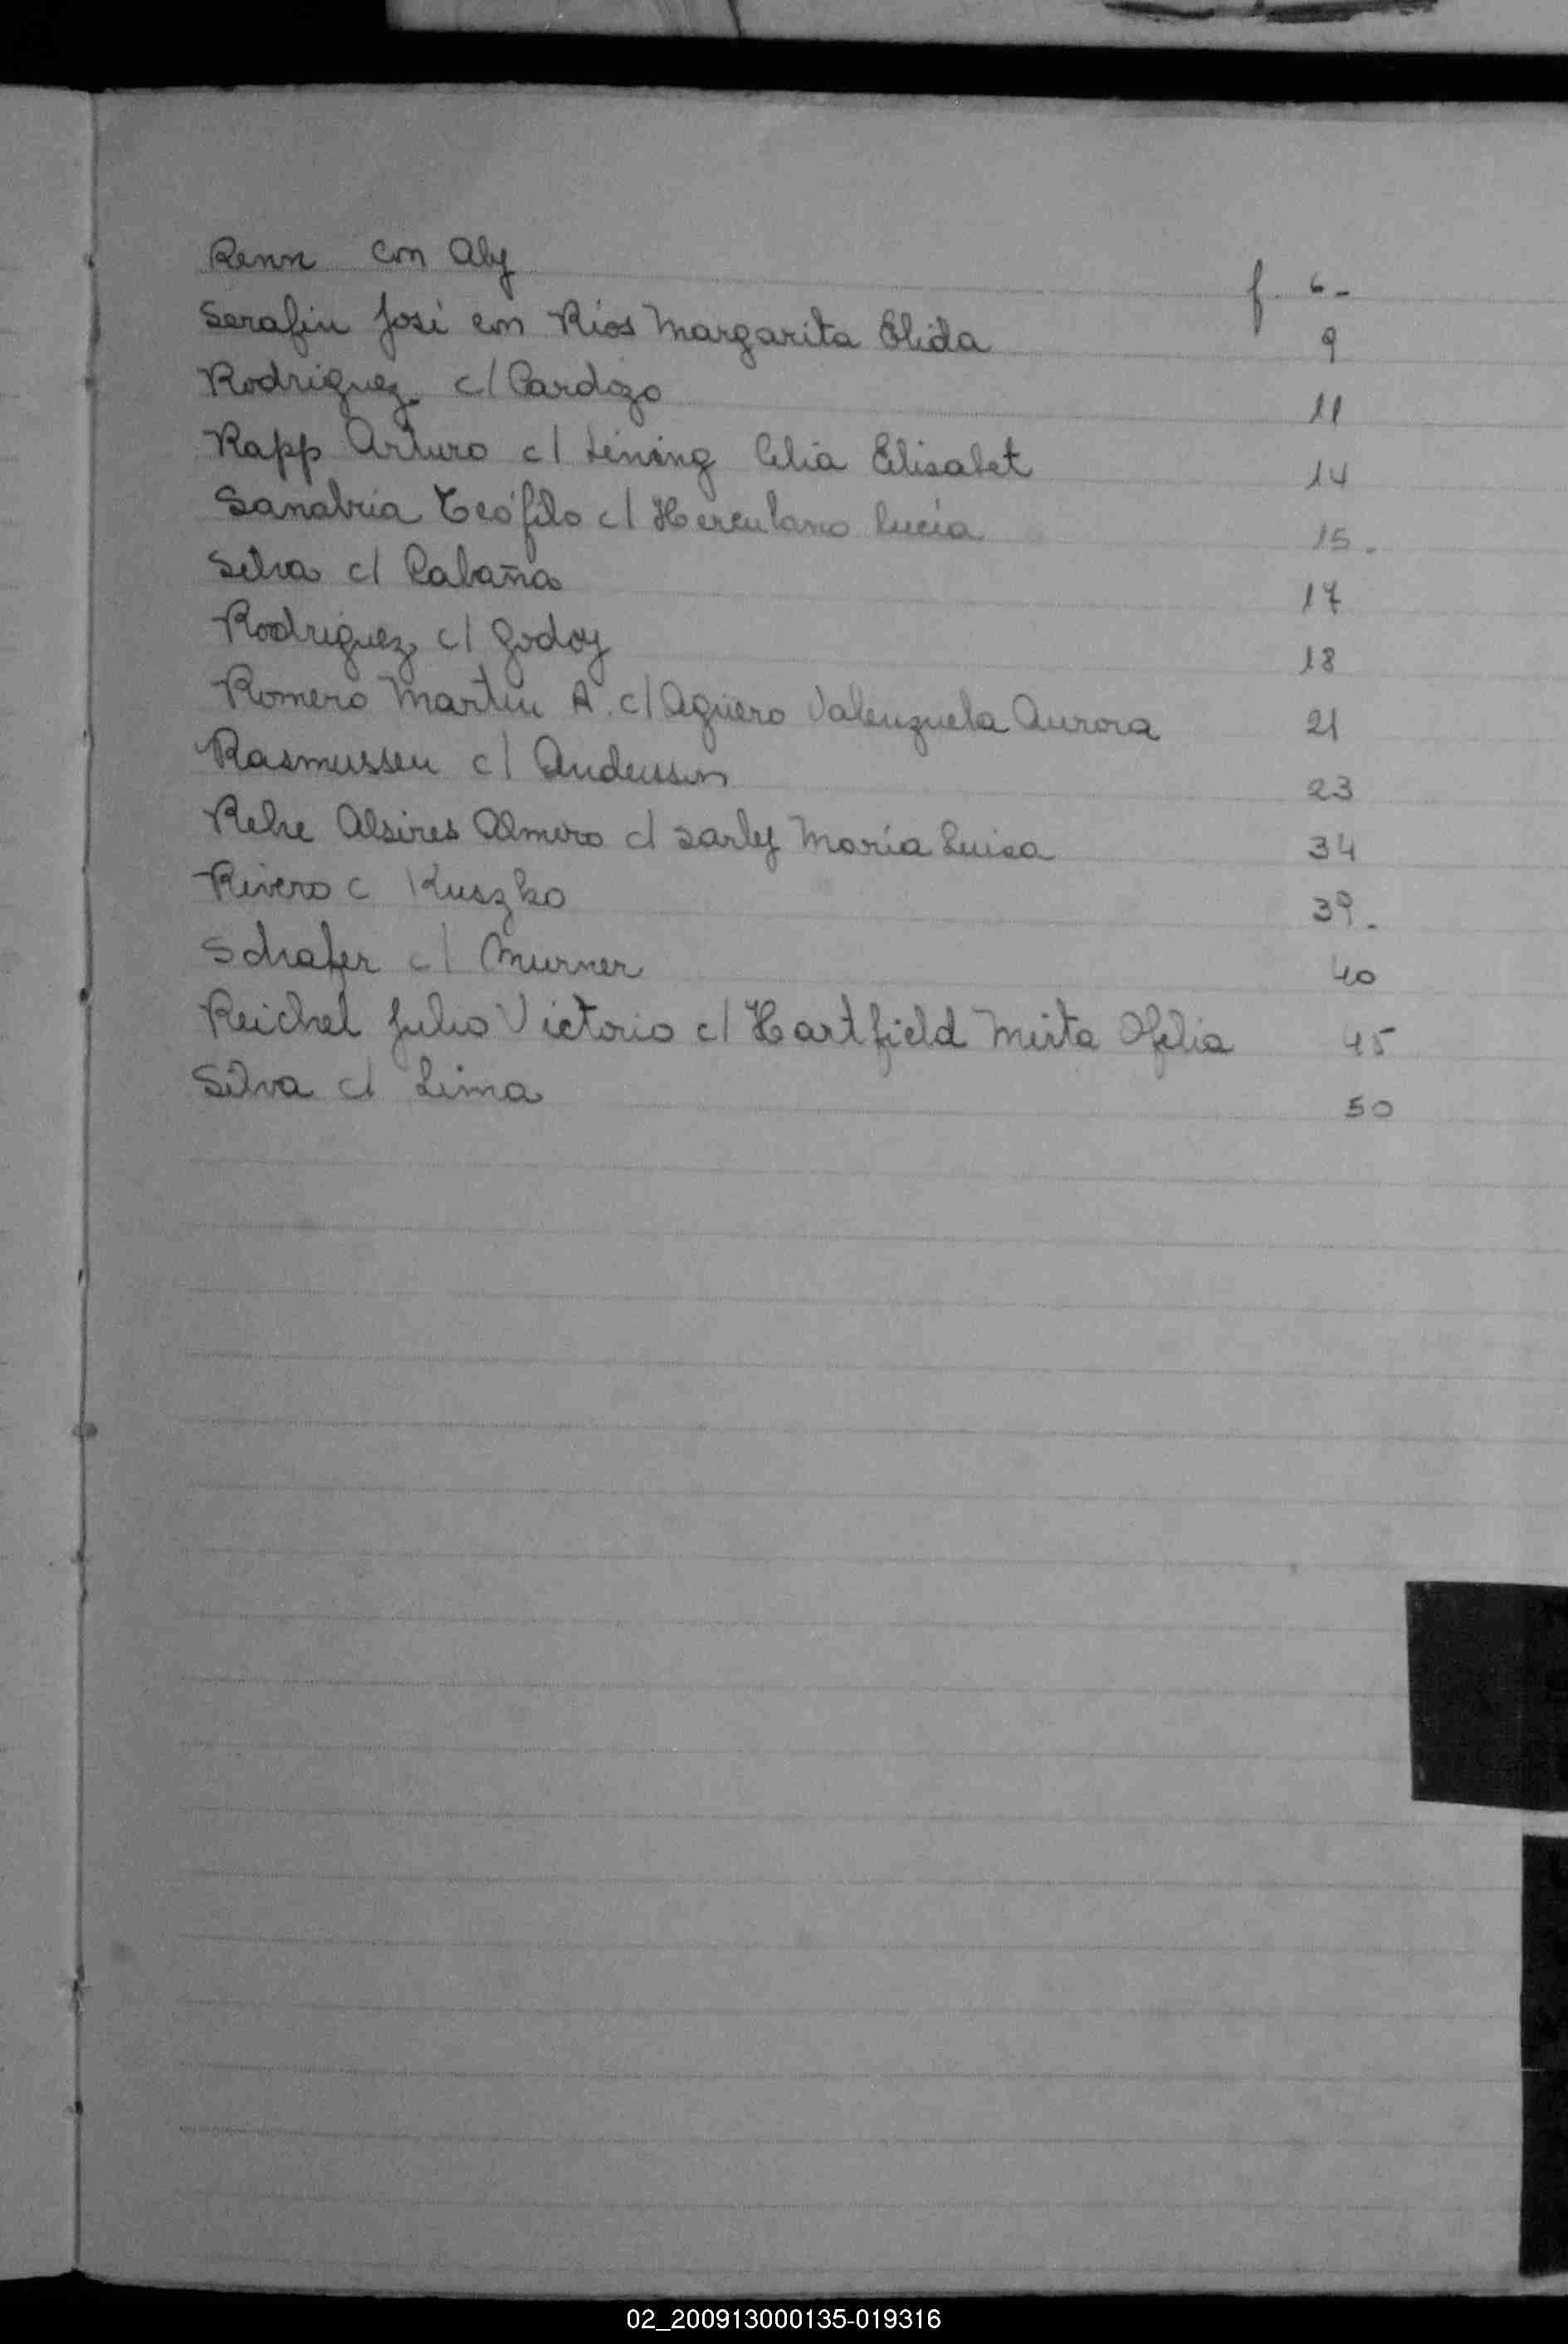 Renn con Aly f. 6-
Serafin José con Rios Margarita Elida 9
Rodriguez c/ Cardozo 11
Rapp Arturo c/ Lening Celia Elisabet 14
Sanabria Teófilo c/ Herculano Lucía 15.
Silva c/ Cabaña 17
Rodriguez c/ Godoy 18
Romero Martin A. c/ Aguero Valenzuela Aurora 21
Rasmussen c/ Andersson 23
Rehe Alsires Almiro c/ Sarly María Luisa 34
Rivero c Kuszko 39.
Schafer c/ Murner 40
Reichel Julio Victorio c/ Hartfield Mirta Ofelia 45
Silva c/ Lima 50
02_200913000135-019316